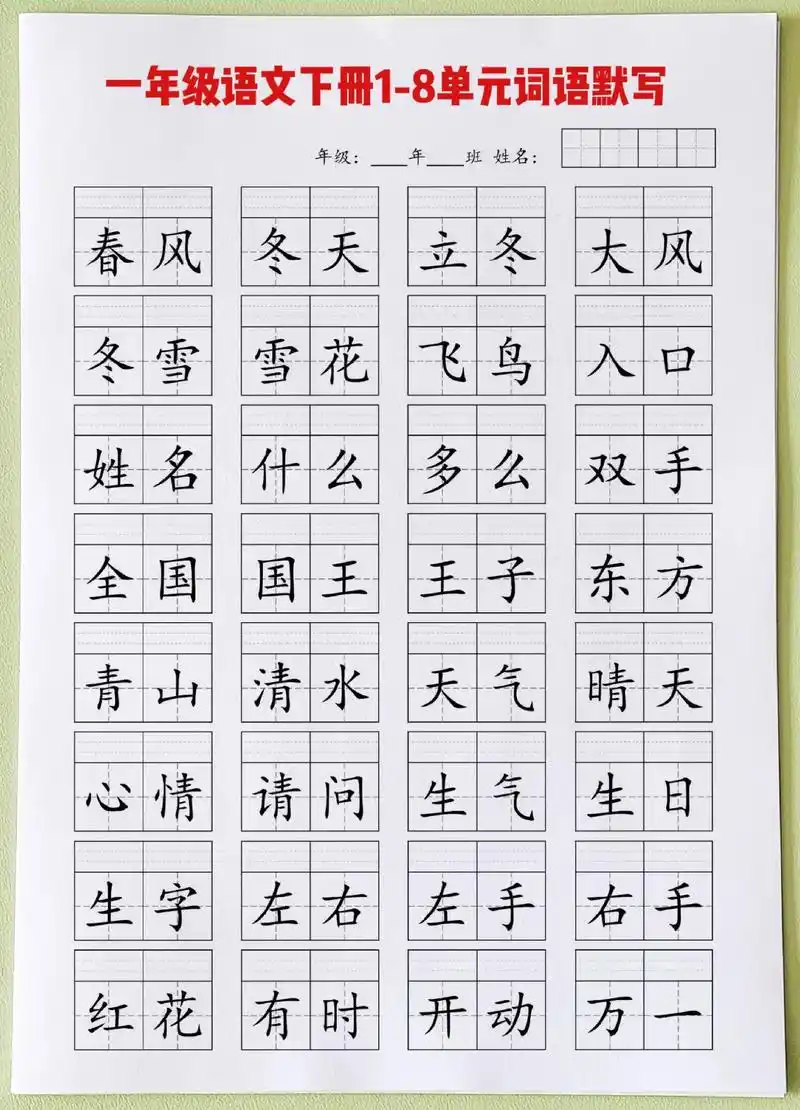 一年级语文下册1-8单元词语默写
年级：____年____班 姓名：
春风 冬天 立冬 大风
冬雪 雪花 飞鸟 入口
姓名 什么 多么 双手
全国 国王 王子 东方
青山 清水 天气 晴天
心情 请问 生气 生日
生字 左右 左手 右手
红花 有时 开动 万一